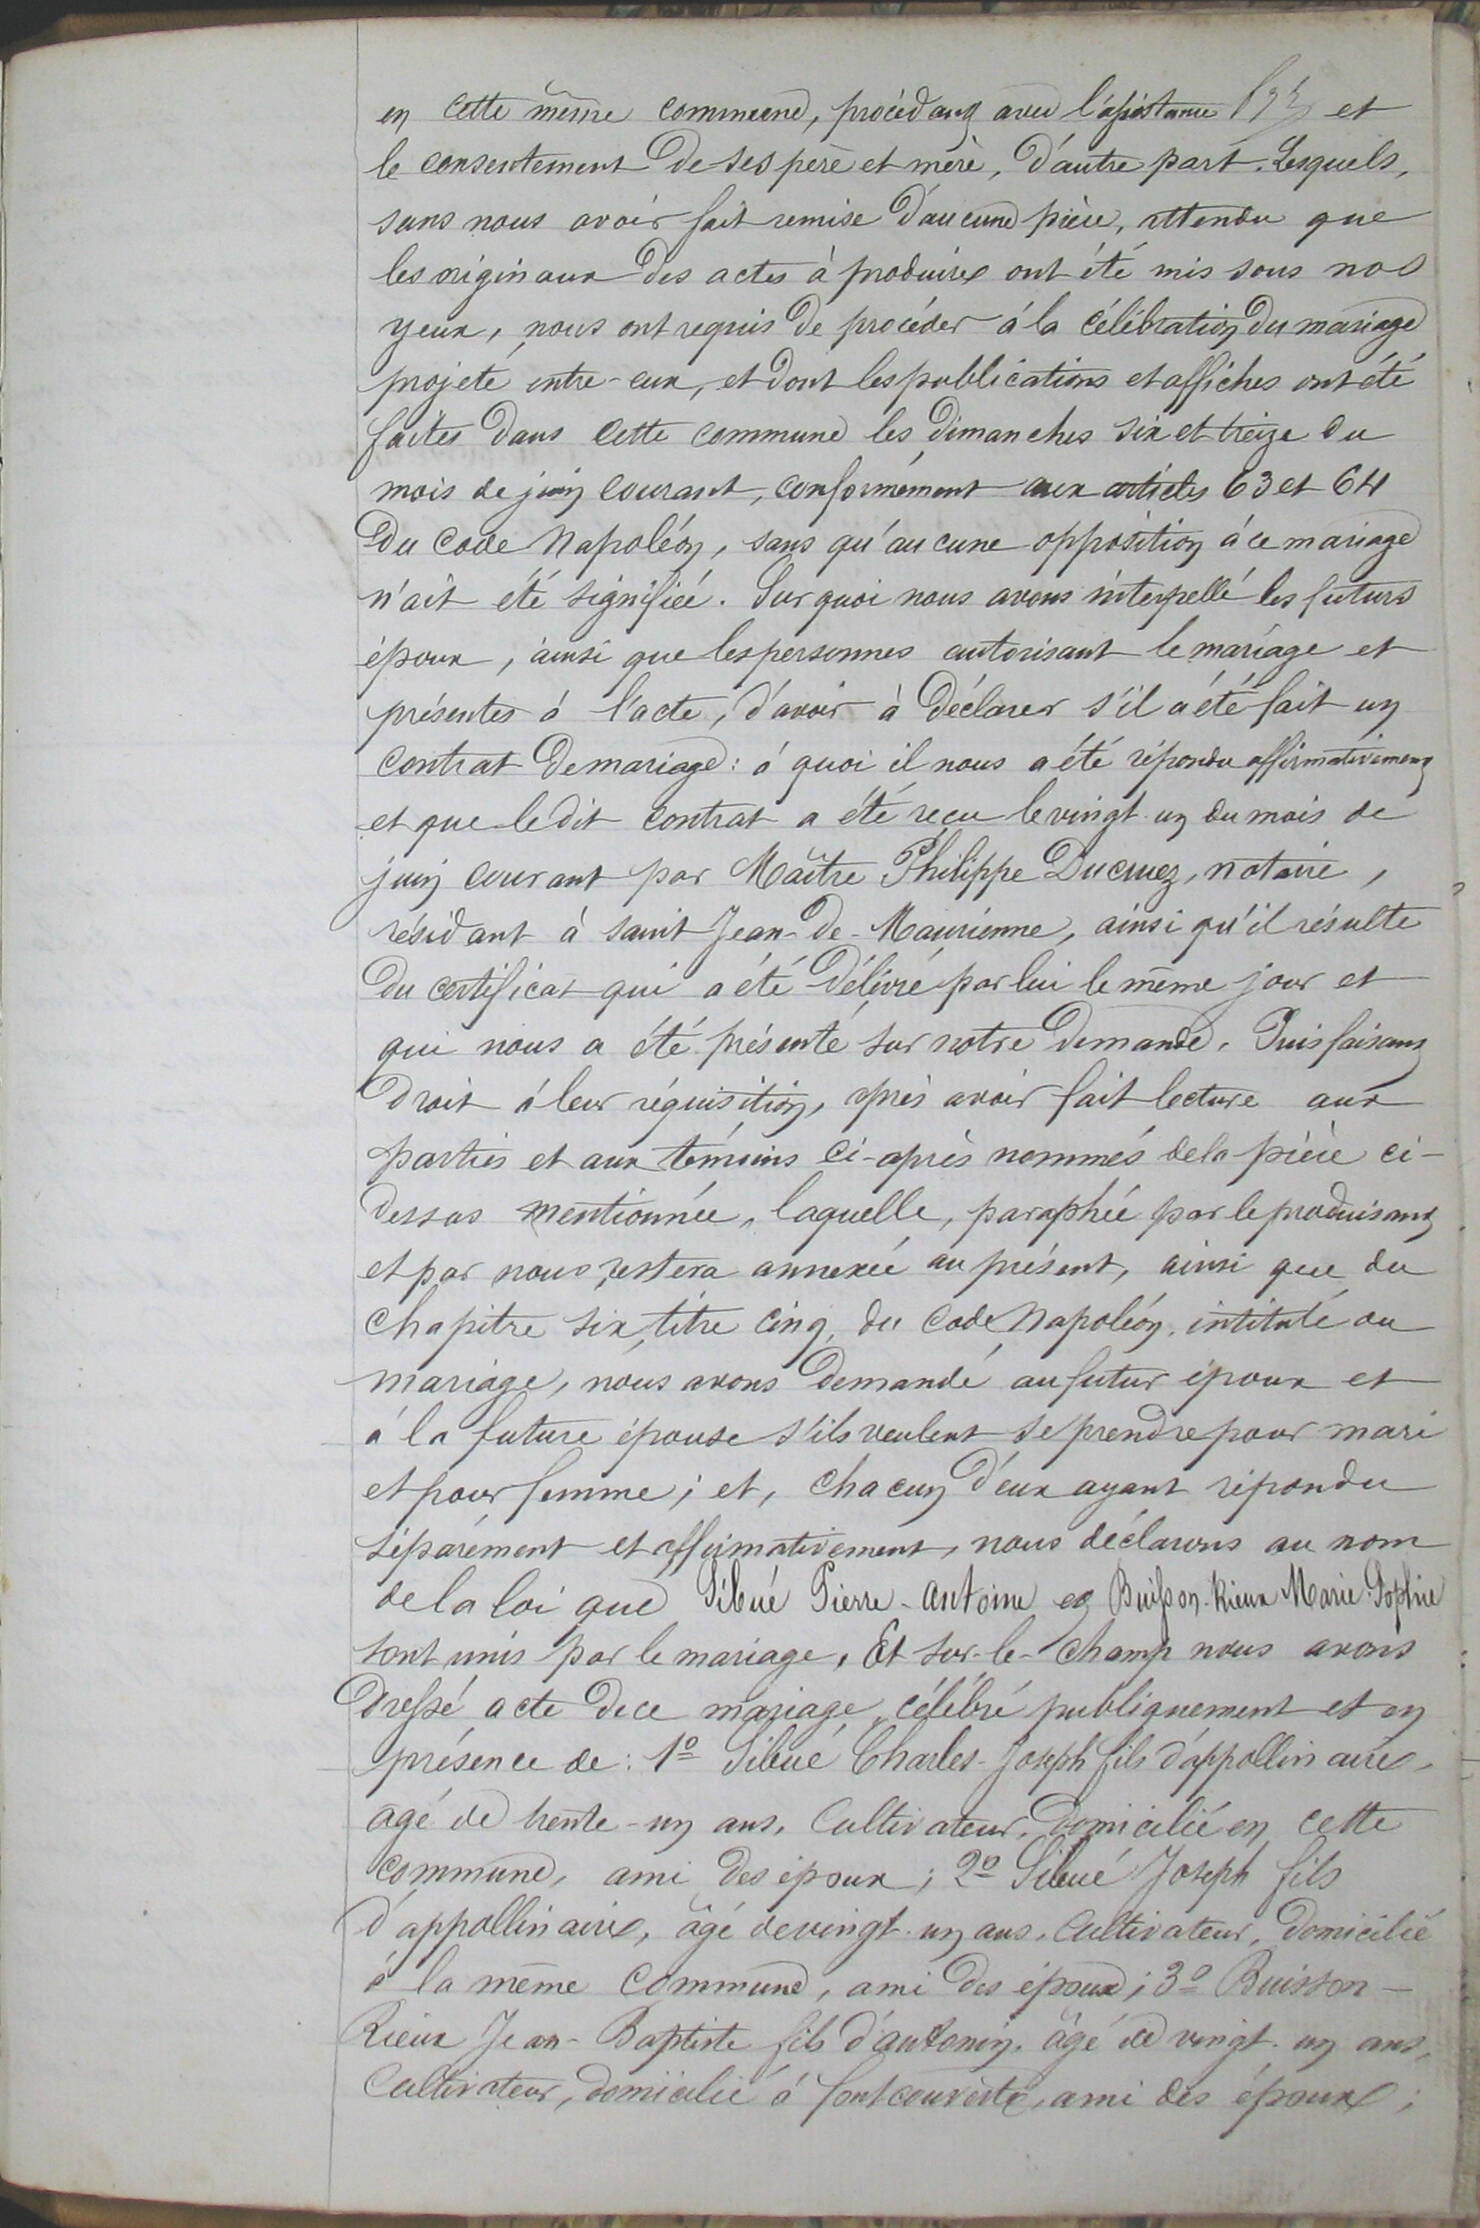 en cette même commune, procédant avec l'assistance et
le consentement de ses père et mère, d'autre part. Lesquels,
sans nous avoir fait remise d'aucune pièce, attendu que
les originaux des actes à produire ont été mis sous nos
yeux, nous ont requis de procéder à la célébration du mariage
projeté entre-eux, et dont les publications et affiches ont été
faites dans cette commune les dimanches six et treize du
mois de juin courant, conformément aux articles 63 et 64
du Code Napoléon, sans qu'aucune opposition à ce mariage
n'ait été signifiée. Sur quoi nous avons interpellé les futurs
époux, ainsi que les personnes autorisant le mariage et
présentes à l'acte, d'avoir à déclarer s'il a été fait un
contrat de mariage : à quoi il nous a été répondu affirmativement
et que le dit contrat a été reçu le vingt-un du mois de
juin courant par Maître Philippe Ducruez, notaire,
résidant à saint Jean-de-Maurienne, ainsi qu'il résulte
du certificat qui a été délivré par lui le même jour et
qui nous a été présenté sur notre demande. Puis faisant
droit à leur réquisition, après avoir fait lecture aux
parties et aux témoins ci-après nommés de la pièce ci-
dessus mentionnée, laquelle, paraphée par le produisant
et par nous, restera annexée au présent, ainsi que du
chapitre six, titre cinq, du Code Napoléon, intitulé du
mariage, nous avons demandé au futur époux et
à la future épouse s'ils veulent se prendre pour mari
et pour femme ; et, chacun d'eux ayant répondu
séparément et affirmativement, nous déclarons au nom
de la loi que Sibué Pierre-Antoine et Buisson-Rieux Marie Sophie
sont unis par le mariage. Et sur-le-champ nous avons
dressé acte de ce mariage, célébré publiquement et en
présence de : 1º Sibué Charles-Joseph fils d'appollinaire,
âgé de trente-un ans, Cultivateur, domicilié en cette
commune, ami des époux ; 2º Sibué Joseph fils
d'appollinaire, âgé de vingt-un ans, Cultivateur, domicilié
à la même commune, ami des époux ; 3º Buisson-
Rieux Jean-Baptiste fils d'antonin, âgé de vingt-un ans,
Cultivateur, domicilié à fontcouverte, ami des époux ;